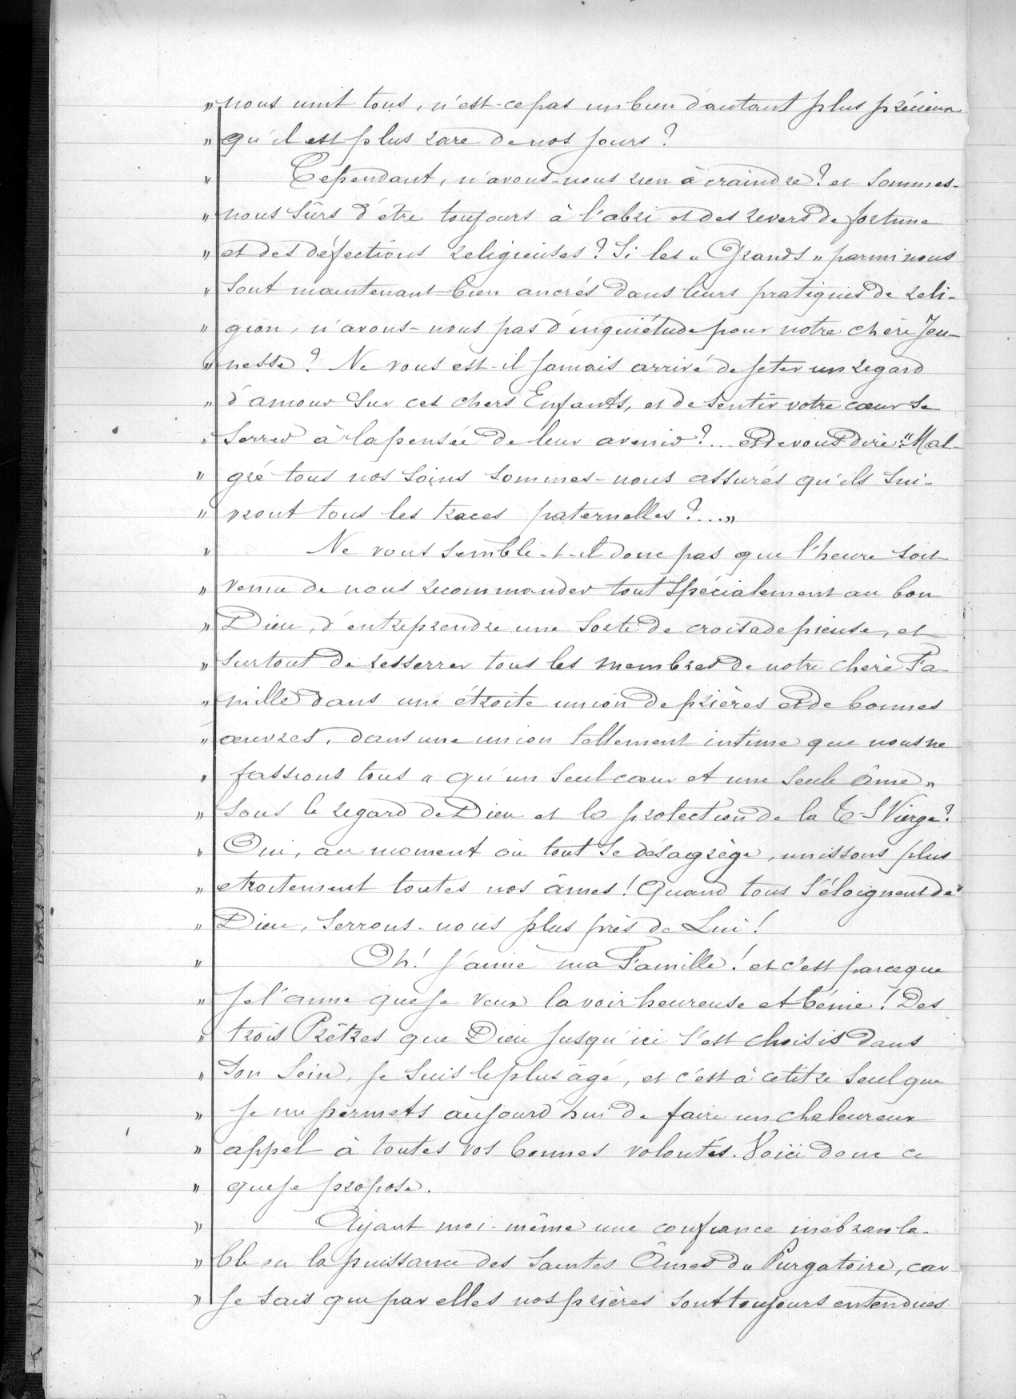 „ nous unit tous, n'est-ce pas un bien d'autant plus précieux
„ qu'il est plus rare de nos jours ?
„ Cependant, n'avons-nous rien à craindre ? et sommes-
„ nous sûrs d'être toujours à l'abri et des revers de fortune
„ et des défections religieuses ? Si les « Grands » parmi nous
„ sont maintenant bien ancrés dans leurs pratiques de reli-
„ gion, n'avons-nous pas d'inquiétude pour notre chère Jeu-
„ nesse ? Ne vous est-il jamais arrivé de jeter un regard
„ d'amour sur ces chers Enfants, et de sentir votre cœur se
„ serrer à la pensée de leur avenir ?... et de vous dire : "Mal-
„ gré tous nos soins sommes-nous assurés qu'ils sui-
„ vront tous les traces paternelles ?... „
„ Ne vous semble-t-il donc pas que l'heure soit
„ venue de nous recommander tout spécialement au bon
„ Dieu, d'entreprendre une sorte de croisade pieuse, et
„ surtout de resserrer tous les membres de notre chère Fa-
„ mille dans une étroite union de prières et de bonnes
„ œuvres, dans une union tellement intime que nous ne
„ fassions tous « qu'un seul cœur et une seule âme »
„ sous le regard de Dieu et la protection de la T. S. Vierge ?
„ Oui, au moment où tout se désagrège, unissons plus
„ etroitement toutes nos âmes ! Quand tous s'éloignent de
„ Dieu, serrons-nous plus près de Lui !
„ Oh ! j'aime ma Famille ! et c'est parceque
„ je l'aime que je veux la voir heureuse et bénie ! Des
„ trois Prêtres que Dieu jusqu'ici s'est choisis dans
„ son sein, je suis le plus âgé, et c'est à ce titre seul que
„ je me permets aujourd'hui de faire un chaleureux
„ appel à toutes vos bonnes volontés. Voici donc ce
„ que je propose.
„ Ayant moi-même une confiance inébranla-
„ ble en la puissance des saintes Âmes du Purgatoire, car
„ je sais que par elles nos prières sont toujours entendues